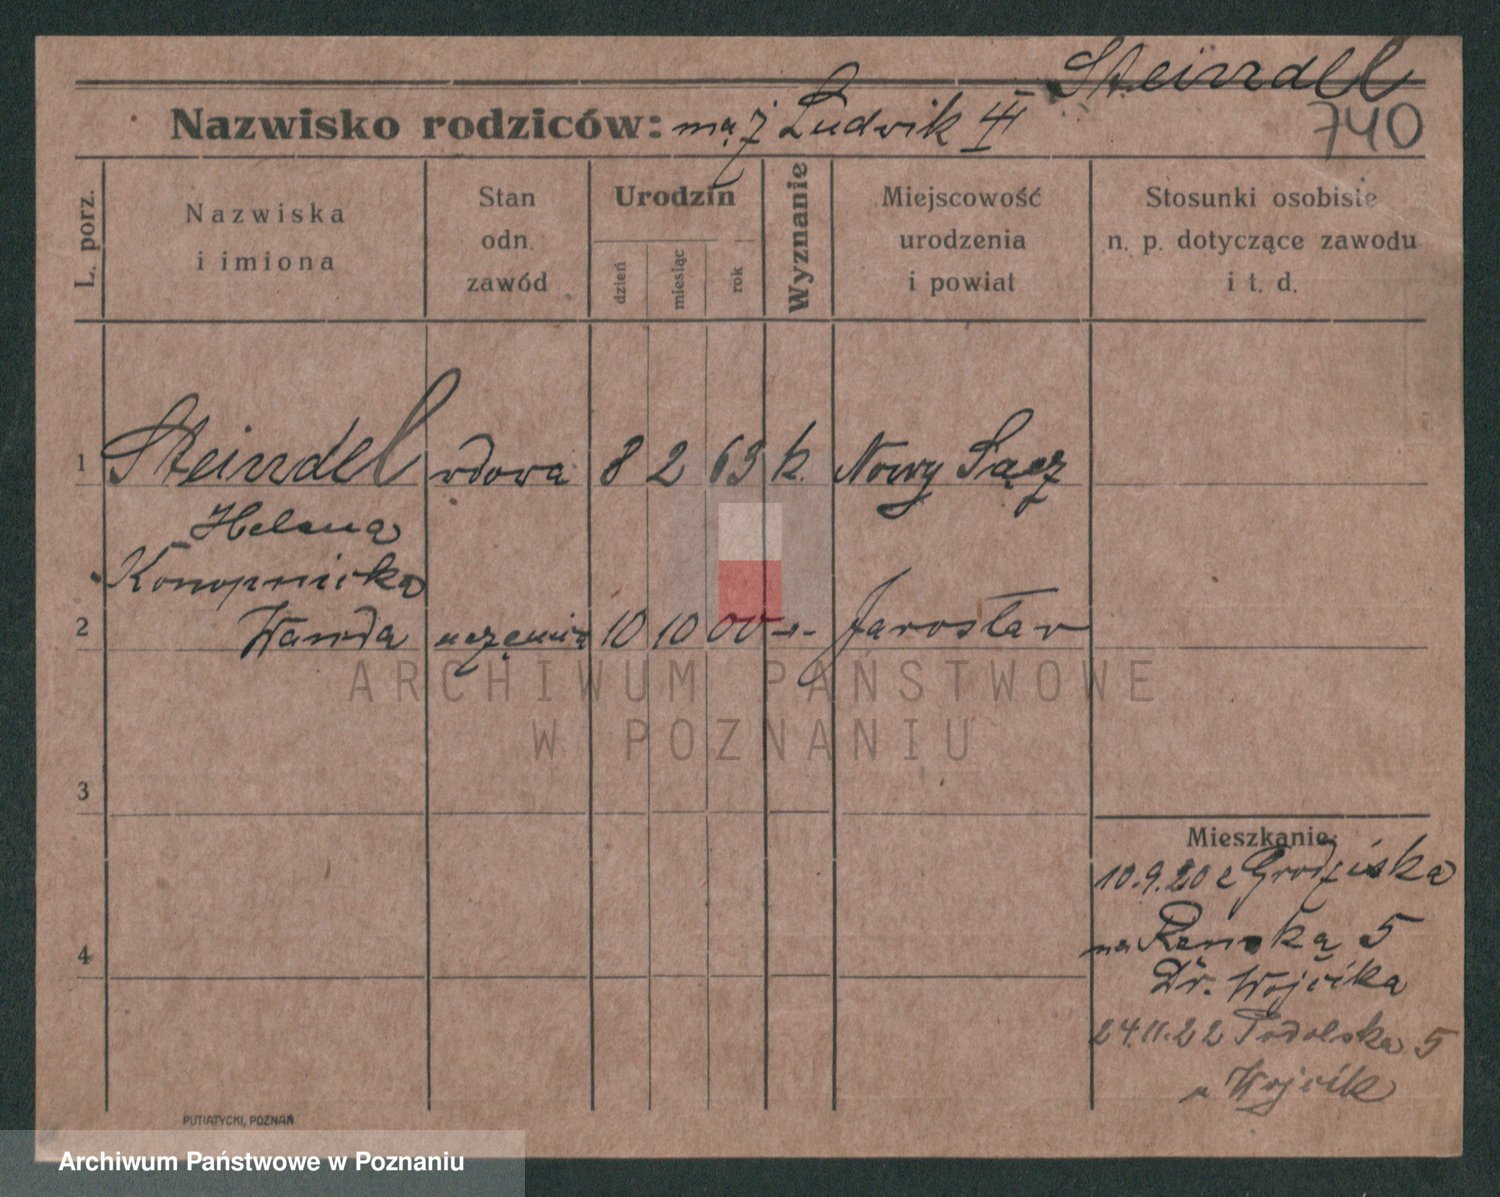 Steindel
Nazwisko rodziców: mąż Ludwik III 740
L. porz.
Nazwiska
i imiona
Stan
odn.
zawód
Urodzin
dzień
miesiąc
rok
Wyznanie
Miejscowość
urodzenia
i powiat
Stosunki osobiste
n. p. dotyczące zawodu
i t. d.
1 Steindel wdowa 8 2 63 k. Nowy Sącz
Helena
Konopnicka
2 Wanda uczennica 10 10 00 -"- Jarosław
ARCHIWUM PAŃSTWOWE
W POZNANIU
3
Mieszkanie:
10.9.20 z Grodziska
na 5
4
Dr. Wojcika
24.11.22 Podolska 5
u Wojcik
PUTIATYCKI, POZNAŃ
Archiwum Państwowe w Poznaniu